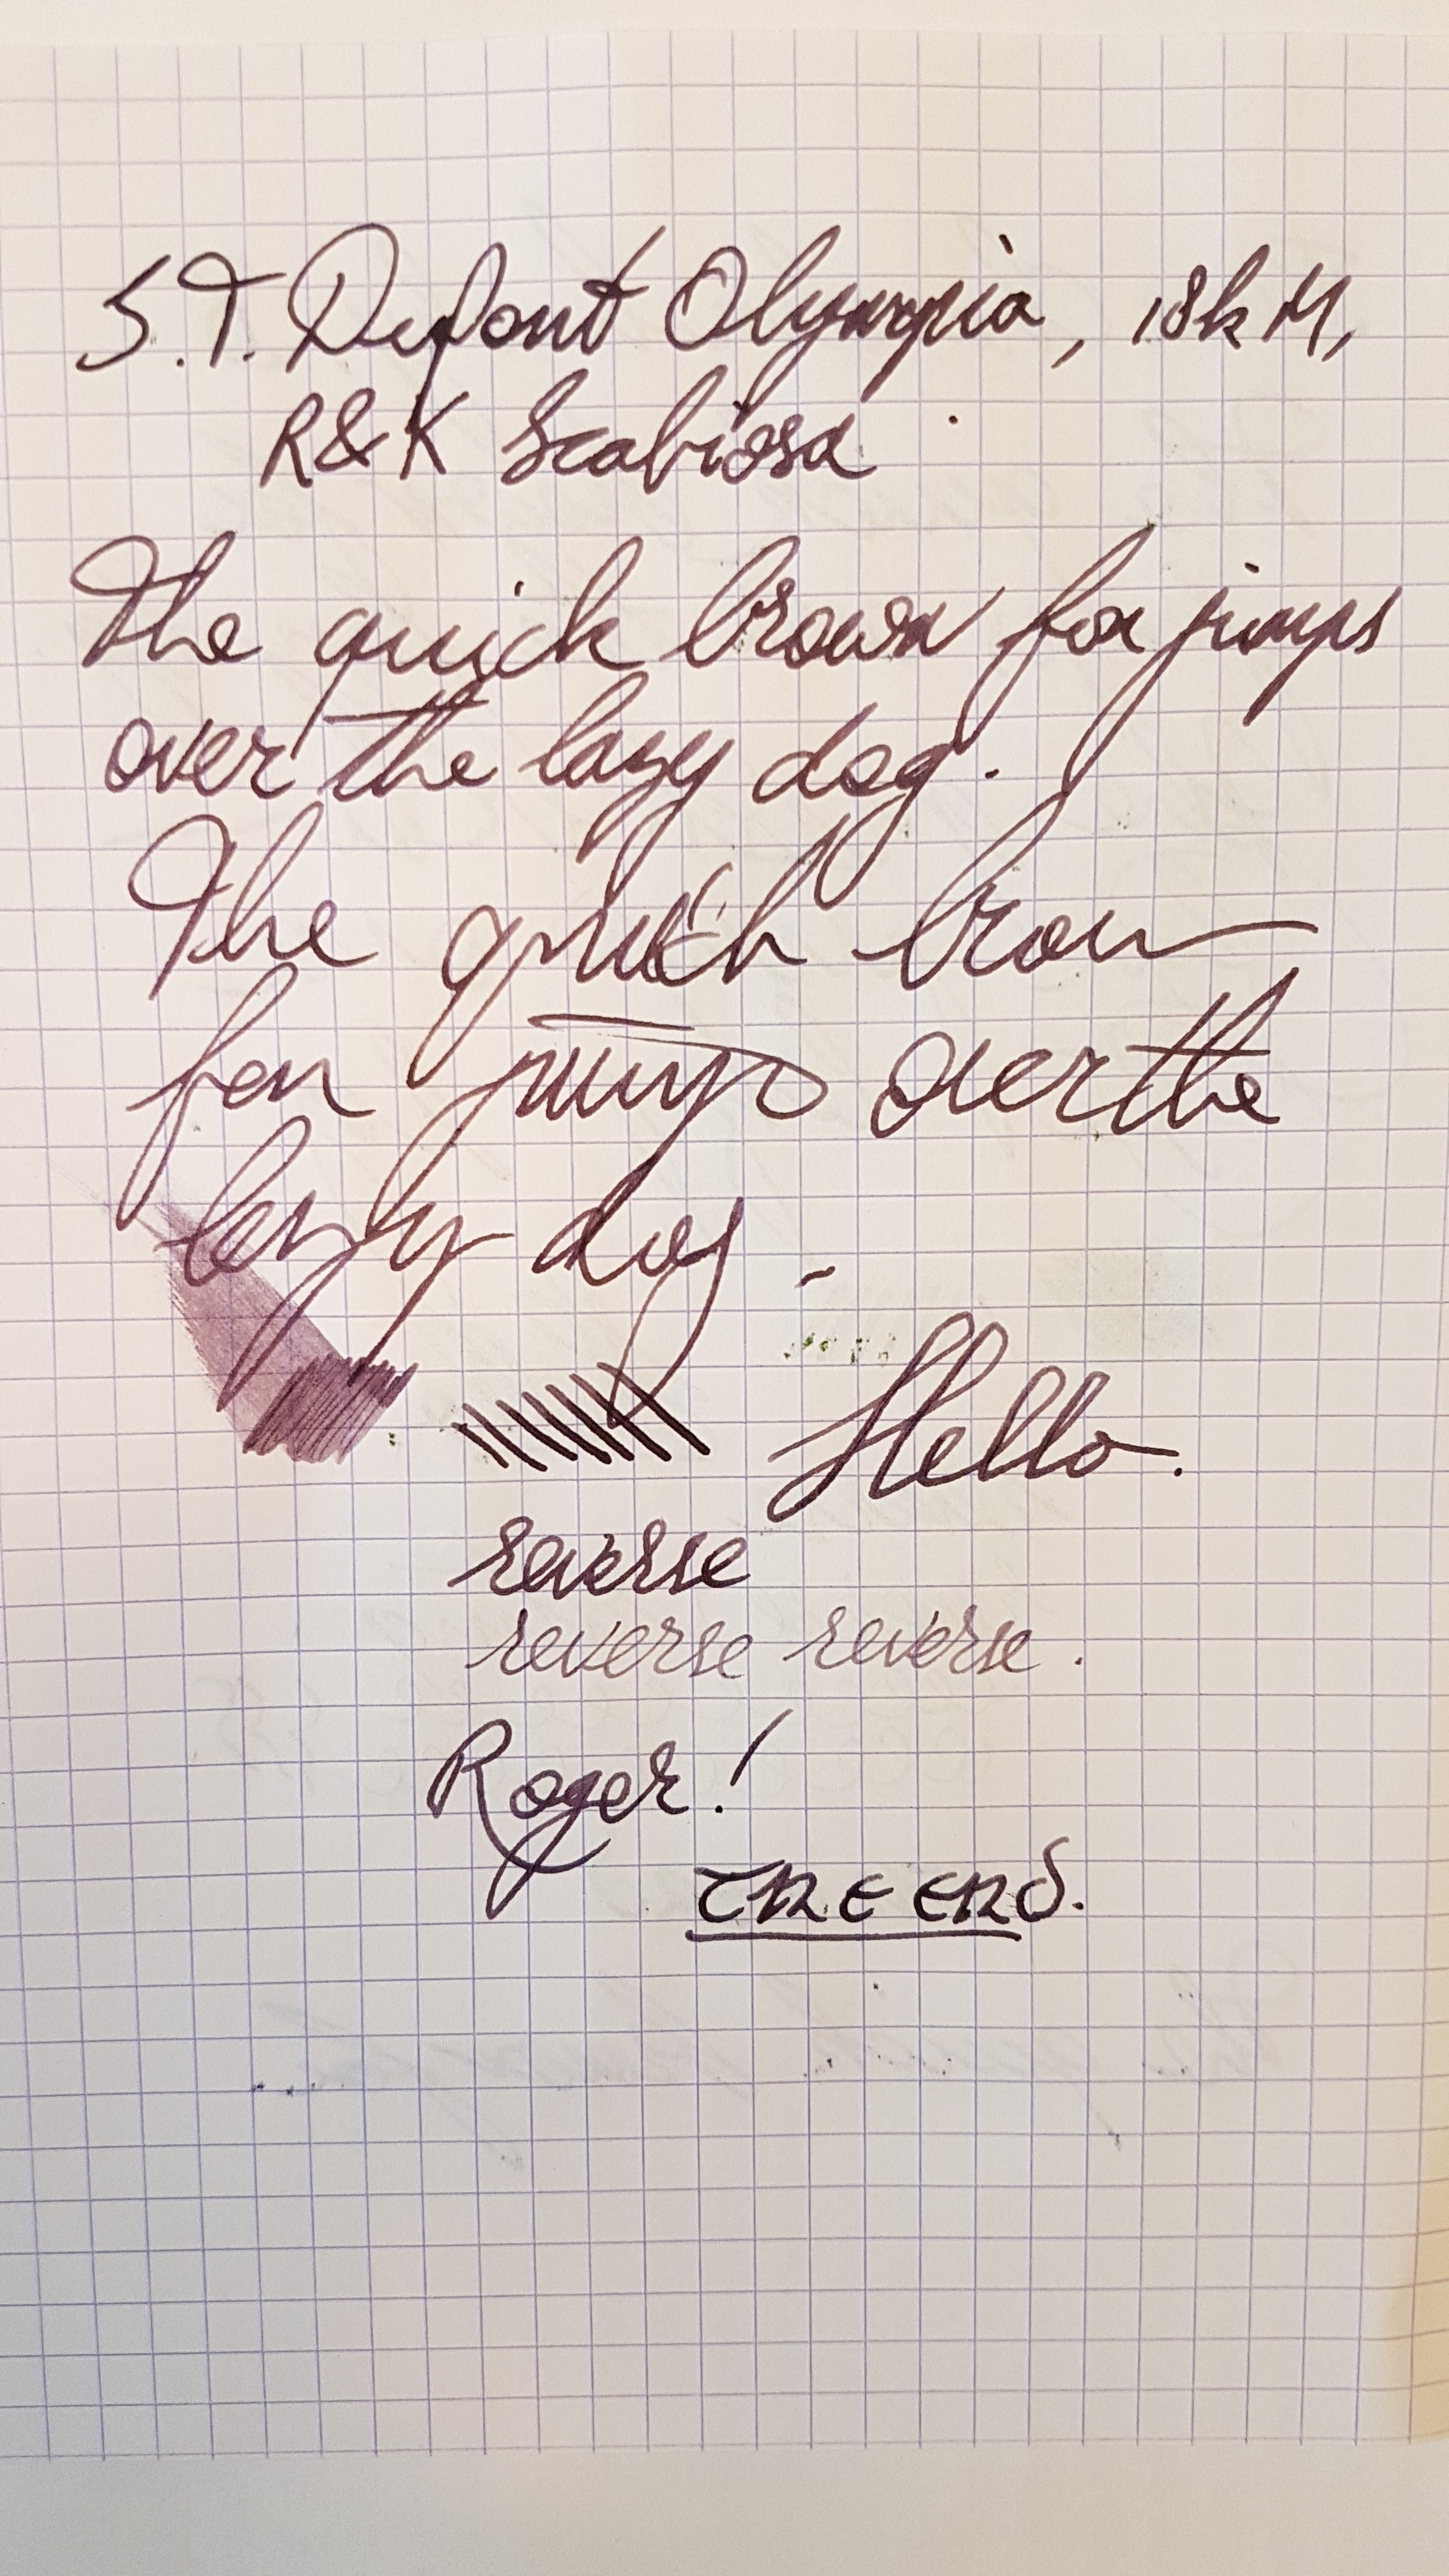 S.T. Dupont Olympia, 18k M,
R&K Scabiosa
The quick brown fox jumps
over the lazy dog.
The quick brow
fox jumps over the
lazy dog.
Hello.
reverse
reverse reverse.
Roger!
THE END.